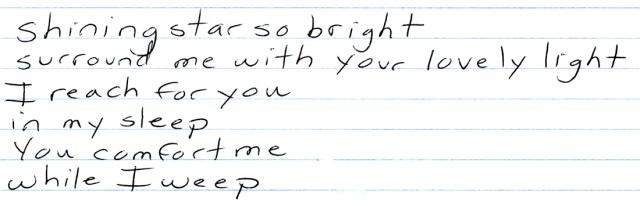 shining star so bright
surround me with your lovely light
I reach for you
in my sleep
You comfort me
while I weep